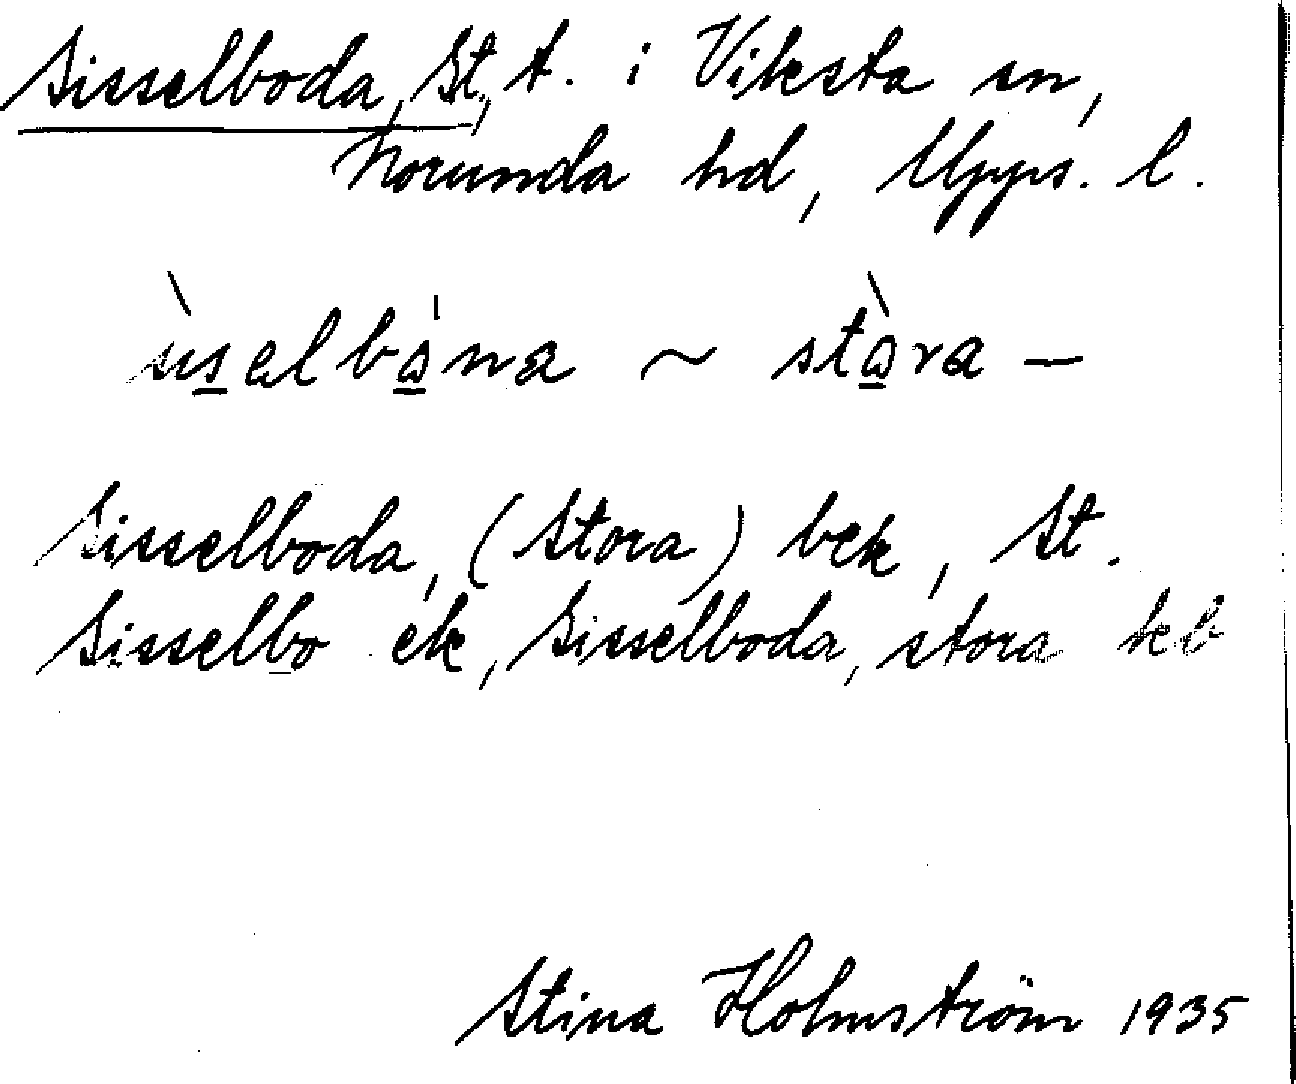 Sisselboda, St, t. i Viksta sn,
Norunda hd, Upps. l.
~ stɷ̀ra —
Sisselboda, (Stora) bek, St.
Sisselbo ek, Sisselboda, stora kb
Stina Holmström 1935